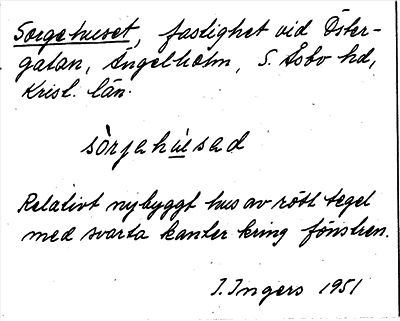 Sorgehuset, fastighet vid Öster-
gatan, Ängelholm, S. Åsbo hd,
Krist. län.
sòrjehu̲sad
Relativt nybyggt hus av rött tegel
med svarta kanter kring fönstren.
I. Ingers 1951